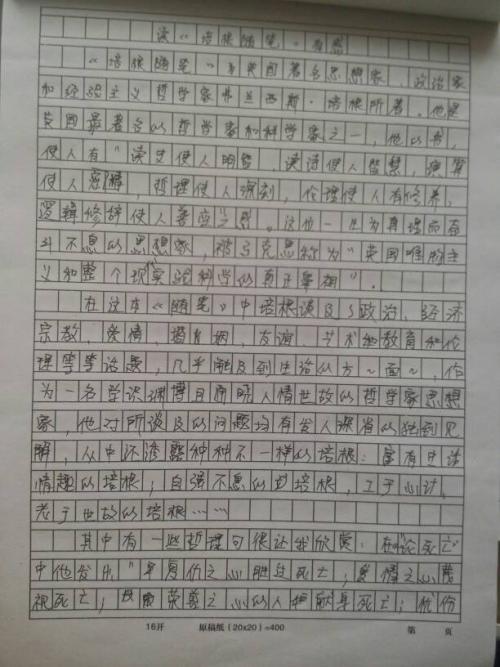 读《培根随笔》有感
《培根随笔》为英国著名思想家、政治家
和经验主义哲学家弗兰西斯·培根所著。他是
英国最著名的哲学家和科学家之一,他的书,
使人有"读史使人明智,读诗使人智慧,演算
使人,哲理使人深刻,伦理使人有修养,
逻辑修辞使人善。这位一生为真理而奋
斗不息的思想家,被马克思称为"英国唯物主
义和整个现实验科学的真正鼻祖"。
在这本《随笔》中培根谈及了政治、经济
宗教、爱情、婚姻、友谊、艺术和教育和伦
理等等话题,几乎触及到生活的方方面面,作
为一名学识渊博且通晓人情世故的哲学家思想
家,他对所谈及的问题均有发人深省的独到见
解,从中还透露种种不一样的培根:富有生活
情趣的培根;自强不息的培根,工于心计、
老于世故的培根……
其中有一些哲理句很让我欣赏:在"论死亡"
中他发出"复仇之心胜过死亡;爱情之心蔑
视死亡;荣誉之心的人献身死亡;忧伤
16开 原稿纸(20×20)=400 第 页